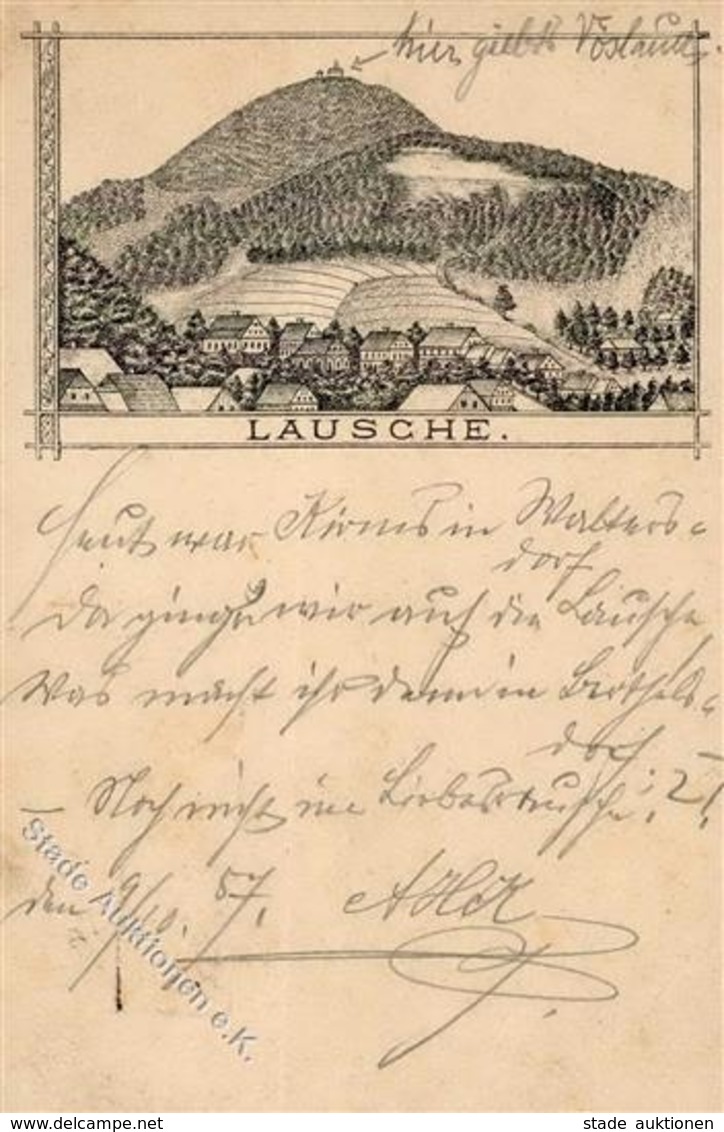 hier giebt's Vöslauer.
LAUSCHE.
Heut war Kirmes in Walters-
dorf
Da gingen wir auf die Lausche
Was macht ihr denn in Berthels-
dorf –
– Noch nicht im Liebesrausche
den 9/10. 87.
Stade Auktionen e.K.
www.delcampe.net
stade auktionen